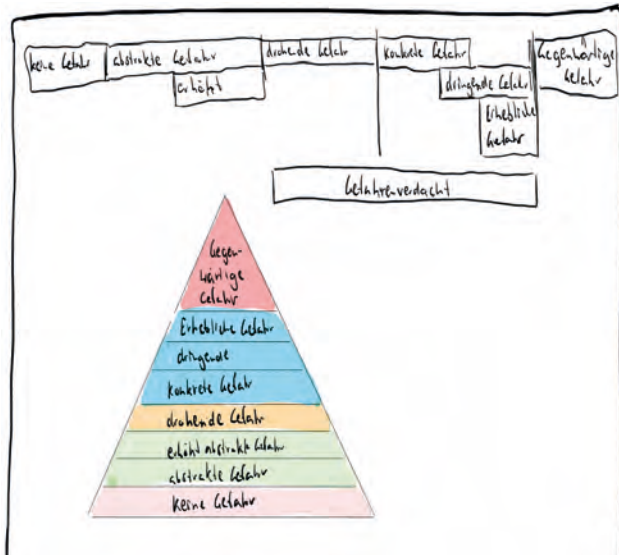 keine Gefahr
abstrakte Gefahr
drohende Gefahr
konkrete Gefahr
Gegenwärtige
Gefahr
erhöht
dringende Gefahr
Erhebliche
Gefahr
Gefahrenverdacht
Gegen-
wärtige
Gefahr
Erhebliche Gefahr
dringende
konkrete Gefahr
drohende Gefahr
erhöht abstrakte Gefahr
abstrakte Gefahr
keine Gefahr